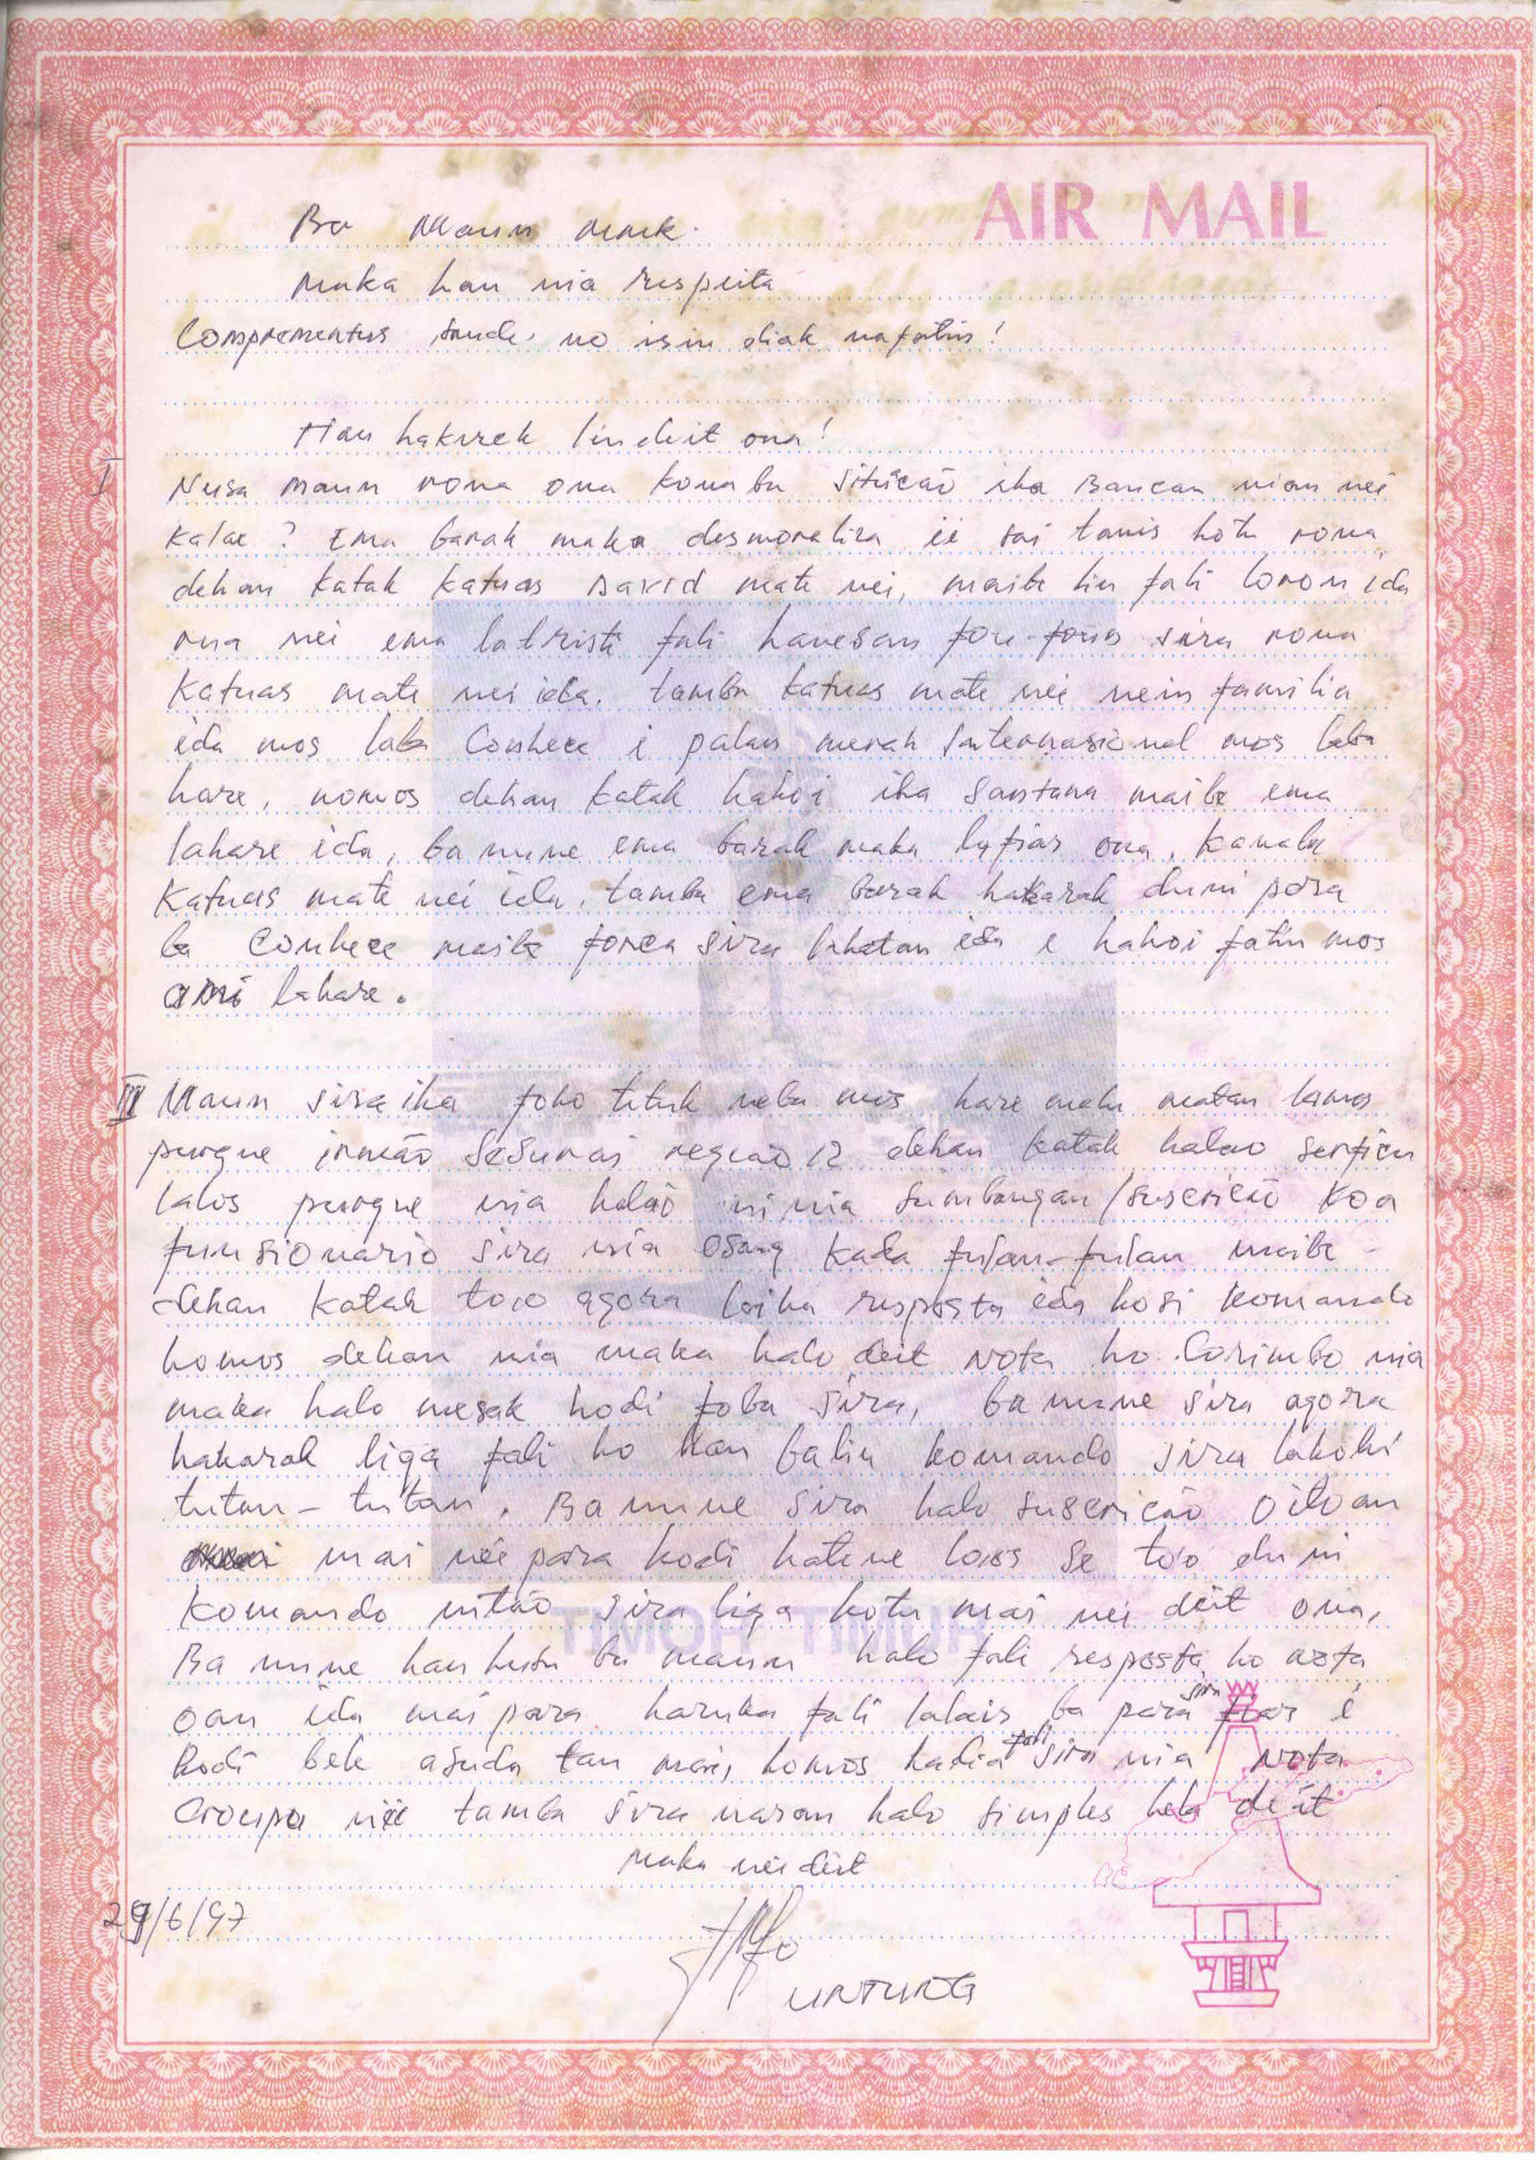 AIR MAIL
Ba Maun
maka hau nia respeita
Comprementus saude no isin diak nafatin!
Hau hakerek lindeit ona!
I Nusa maun rona ona konaba situicão iha Baucau nian neé
Kalae? Ema barak maka desmoraliza sai tanis hotu rona
dehan katak katuas David mate nei, maibe liu fali loron ida
rua nei ema la tristi fali hanesan fou-foun sira rona
Katuas mate nei ida. tamba katuas mate nei nein familia
ida mos laba Conhece i palan merah Internasional mos laba
hare, nomos dehan katak hakoi iha Santana maibe ema
lahare ida, ba nune ema barak maka lafiar ona. Konaba
Katuas mate nei ida. tamba ema barak hakarak duni para
ba Conhece maibe forca sira lahatan ida e hakoi fatin mos
ami lahare.
III Maun sira iha foho tutuk neba mos hare malu matan lamos
purque irmão Sesurai região 12 dehan katak halao serficu
lalos purque nia halaó ni nia sumbangan/suscricão koa
funsionario sira nia Osang kada fulan-fulan maibe -
dehan katak too agora laiha resposta ida hosi komando
homos dehan nia maka halo deit nota ho Carimbo nia
maka halo mesak hodi foba sira, ba nune sira agora
hakarak liga fali ho hau balin komando sira lakohi
tutan-tutan. Ba nune sira halo suscricão Oitoan
mai nei para hodi hatene loos se too duni
Komando nitão sira liga hotu mai nei deit ona,
Ba nune hau husu ba maun halo fali resposta ho nota
oan ida mai para haruka fali lalais ba para sira fiar é
hodi bele ajuda tan mais, homos hadia fali sira nia nota
neé tamba sira naran halo simples hela deit
maka nei deit
29/6/97
UNTUNG
TIMOR TIMUR